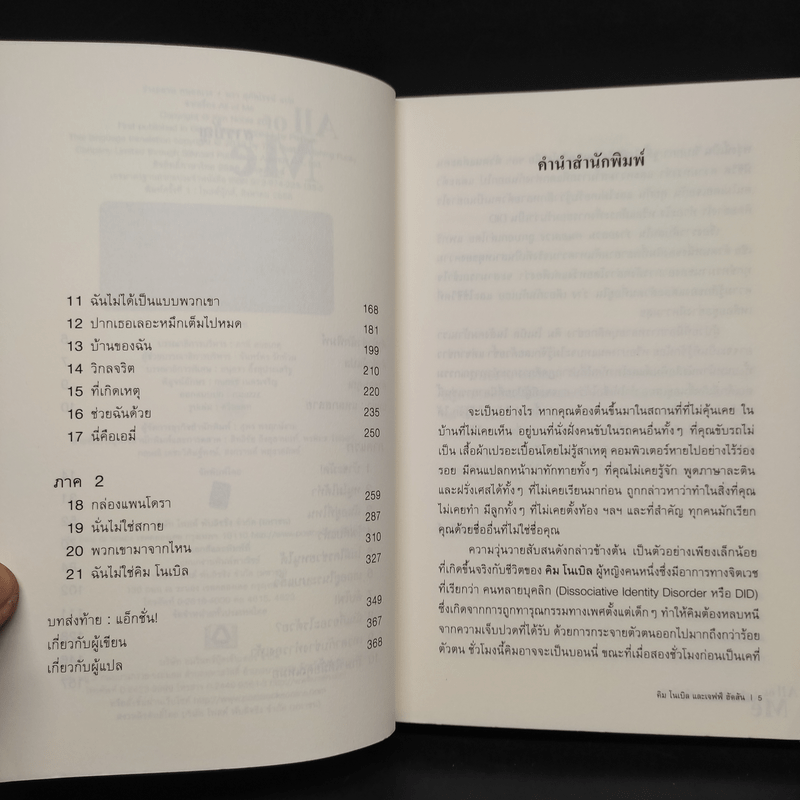 11 ฉันไม่ได้เป็นแบบพวกเขา 168
12 ปากเธอเลอะหมึกเต็มไปหมด 181
13 บ้านของฉัน 199
14 วิกลจริต 210
15 ที่เกิดเหตุ 220
16 ช่วยฉันด้วย 235
17 นี่คือเอมี่ 250
ภาค 2
18 กล่องแพนโดรา 259
19 นั่นไม่ใช่สกาย 287
20 พวกเขามาจากไหน 310
21 ฉันไม่ใช่คิม โนเบิล 327
บทส่งท้าย : แอ็กชั่น! 349
เกี่ยวกับผู้เขียน 367
เกี่ยวกับผู้แปล 368
คำนำสำนักพิมพ์
จะเป็นอย่างไร หากคุณต้องตื่นขึ้นมาในสถานที่ที่ไม่คุ้นเคย ใน
บ้านที่ไม่เคยเห็น อยู่บนที่นั่งฝั่งคนขับในรถคนอื่นทั้งๆ ที่คุณขับรถไม่
เป็น เสื้อผ้าเปรอะเปื้อนโดยไม่รู้สาเหตุ คอมพิวเตอร์หายไปอย่างไร้ร่อง
รอย มีคนแปลกหน้ามาทักทายทั้งๆ ที่คุณไม่เคยรู้จัก พูดภาษาละติน
และฝรั่งเศสได้ทั้งๆ ที่ไม่เคยเรียนมาก่อน ถูกกล่าวหาว่าทำในสิ่งที่คุณ
ไม่เคยทำ มีลูกทั้งๆ ที่ไม่เคยตั้งท้อง ฯลฯ และที่สำคัญ ทุกคนมักเรียก
คุณด้วยชื่ออื่นที่ไม่ใช่ชื่อคุณ
ความวุ่นวายสับสนดังกล่าวข้างต้น เป็นตัวอย่างเพียงเล็กน้อย
ที่เกิดขึ้นจริงกับชีวิตของ คิม โนเบิล ผู้หญิงคนหนึ่งซึ่งมีอาการทางจิตเวช
ที่เรียกว่า คนหลายบุคลิก (Dissociative Identity Disorder หรือ DID)
ซึ่งเกิดจากการถูกทารุณกรรมทางเพศตั้งแต่เด็กๆ ทำให้คิมต้องหลบหนี
จากความเจ็บปวดที่ได้รับ ด้วยการกระจายตัวตนออกไปมากถึงกว่าร้อย
ตัวตน ชั่วโมงนี้คิมอาจจะเป็นบอนนี่ ขณะที่เมื่อสองชั่วโมงก่อนเป็นเคที่
คิม โนเบิล และเจฟฟ์ ฮัดสัน | 5